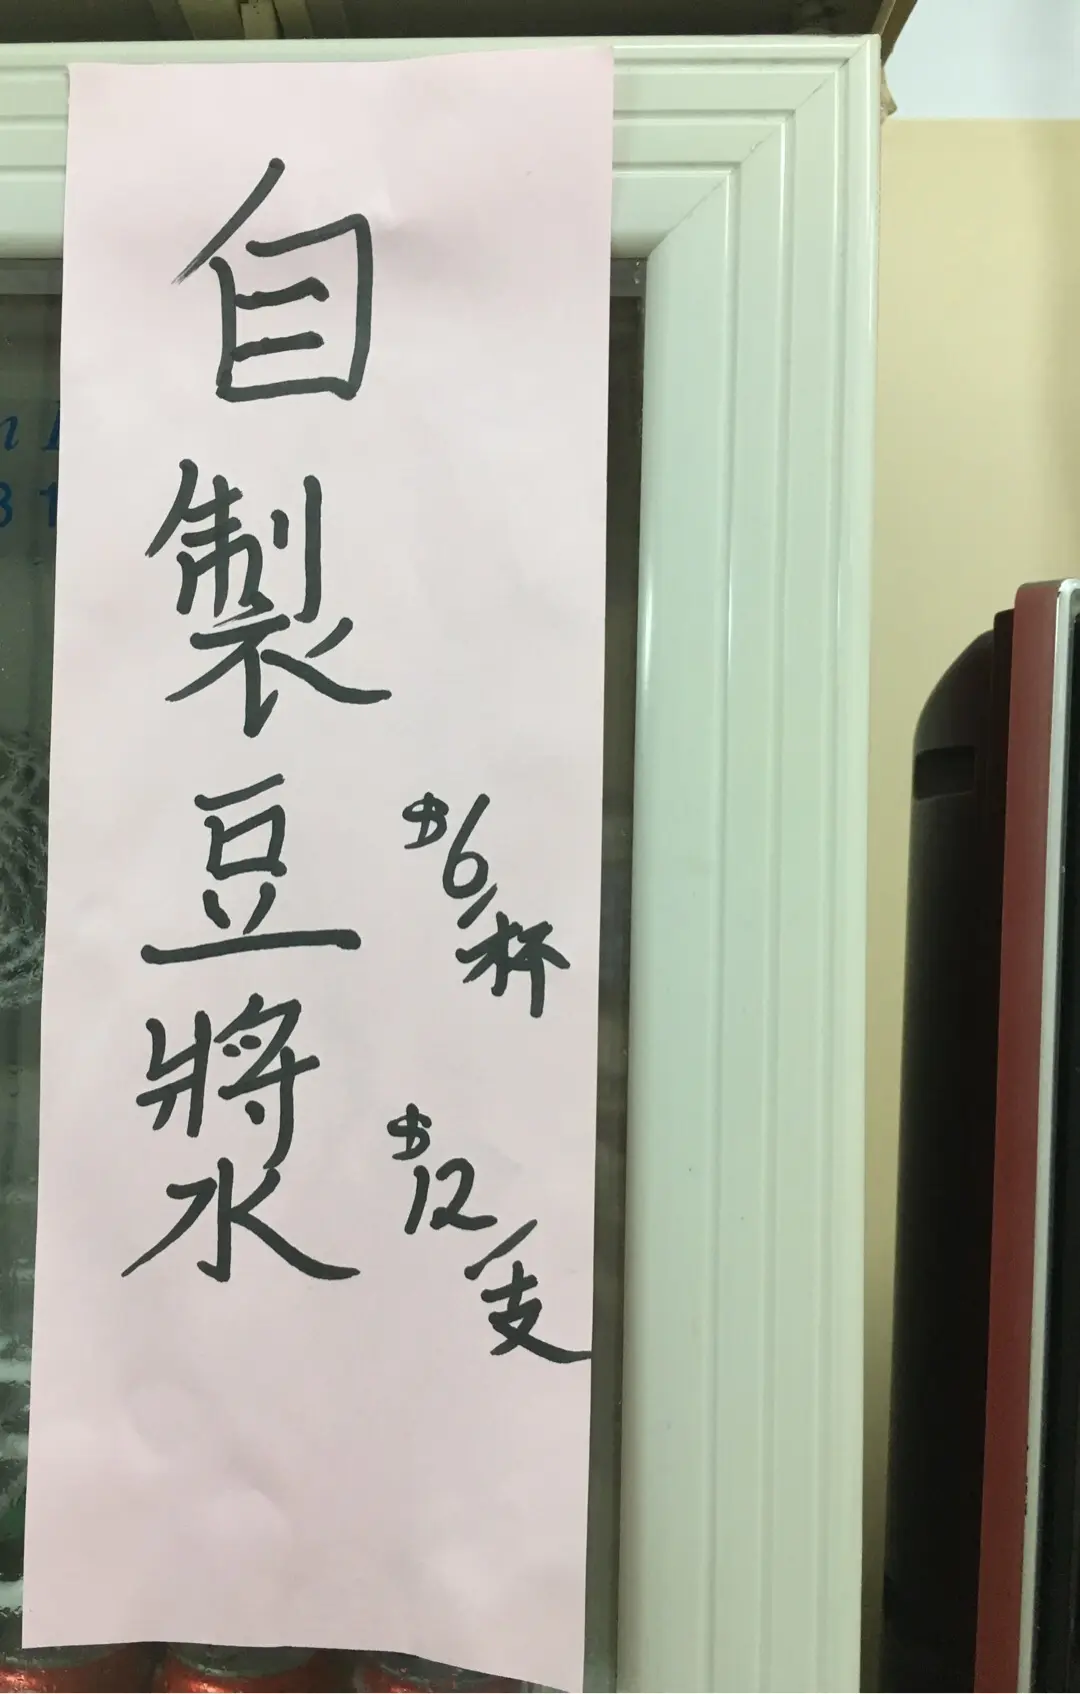 自製豆將水
$6/杯
$12/支